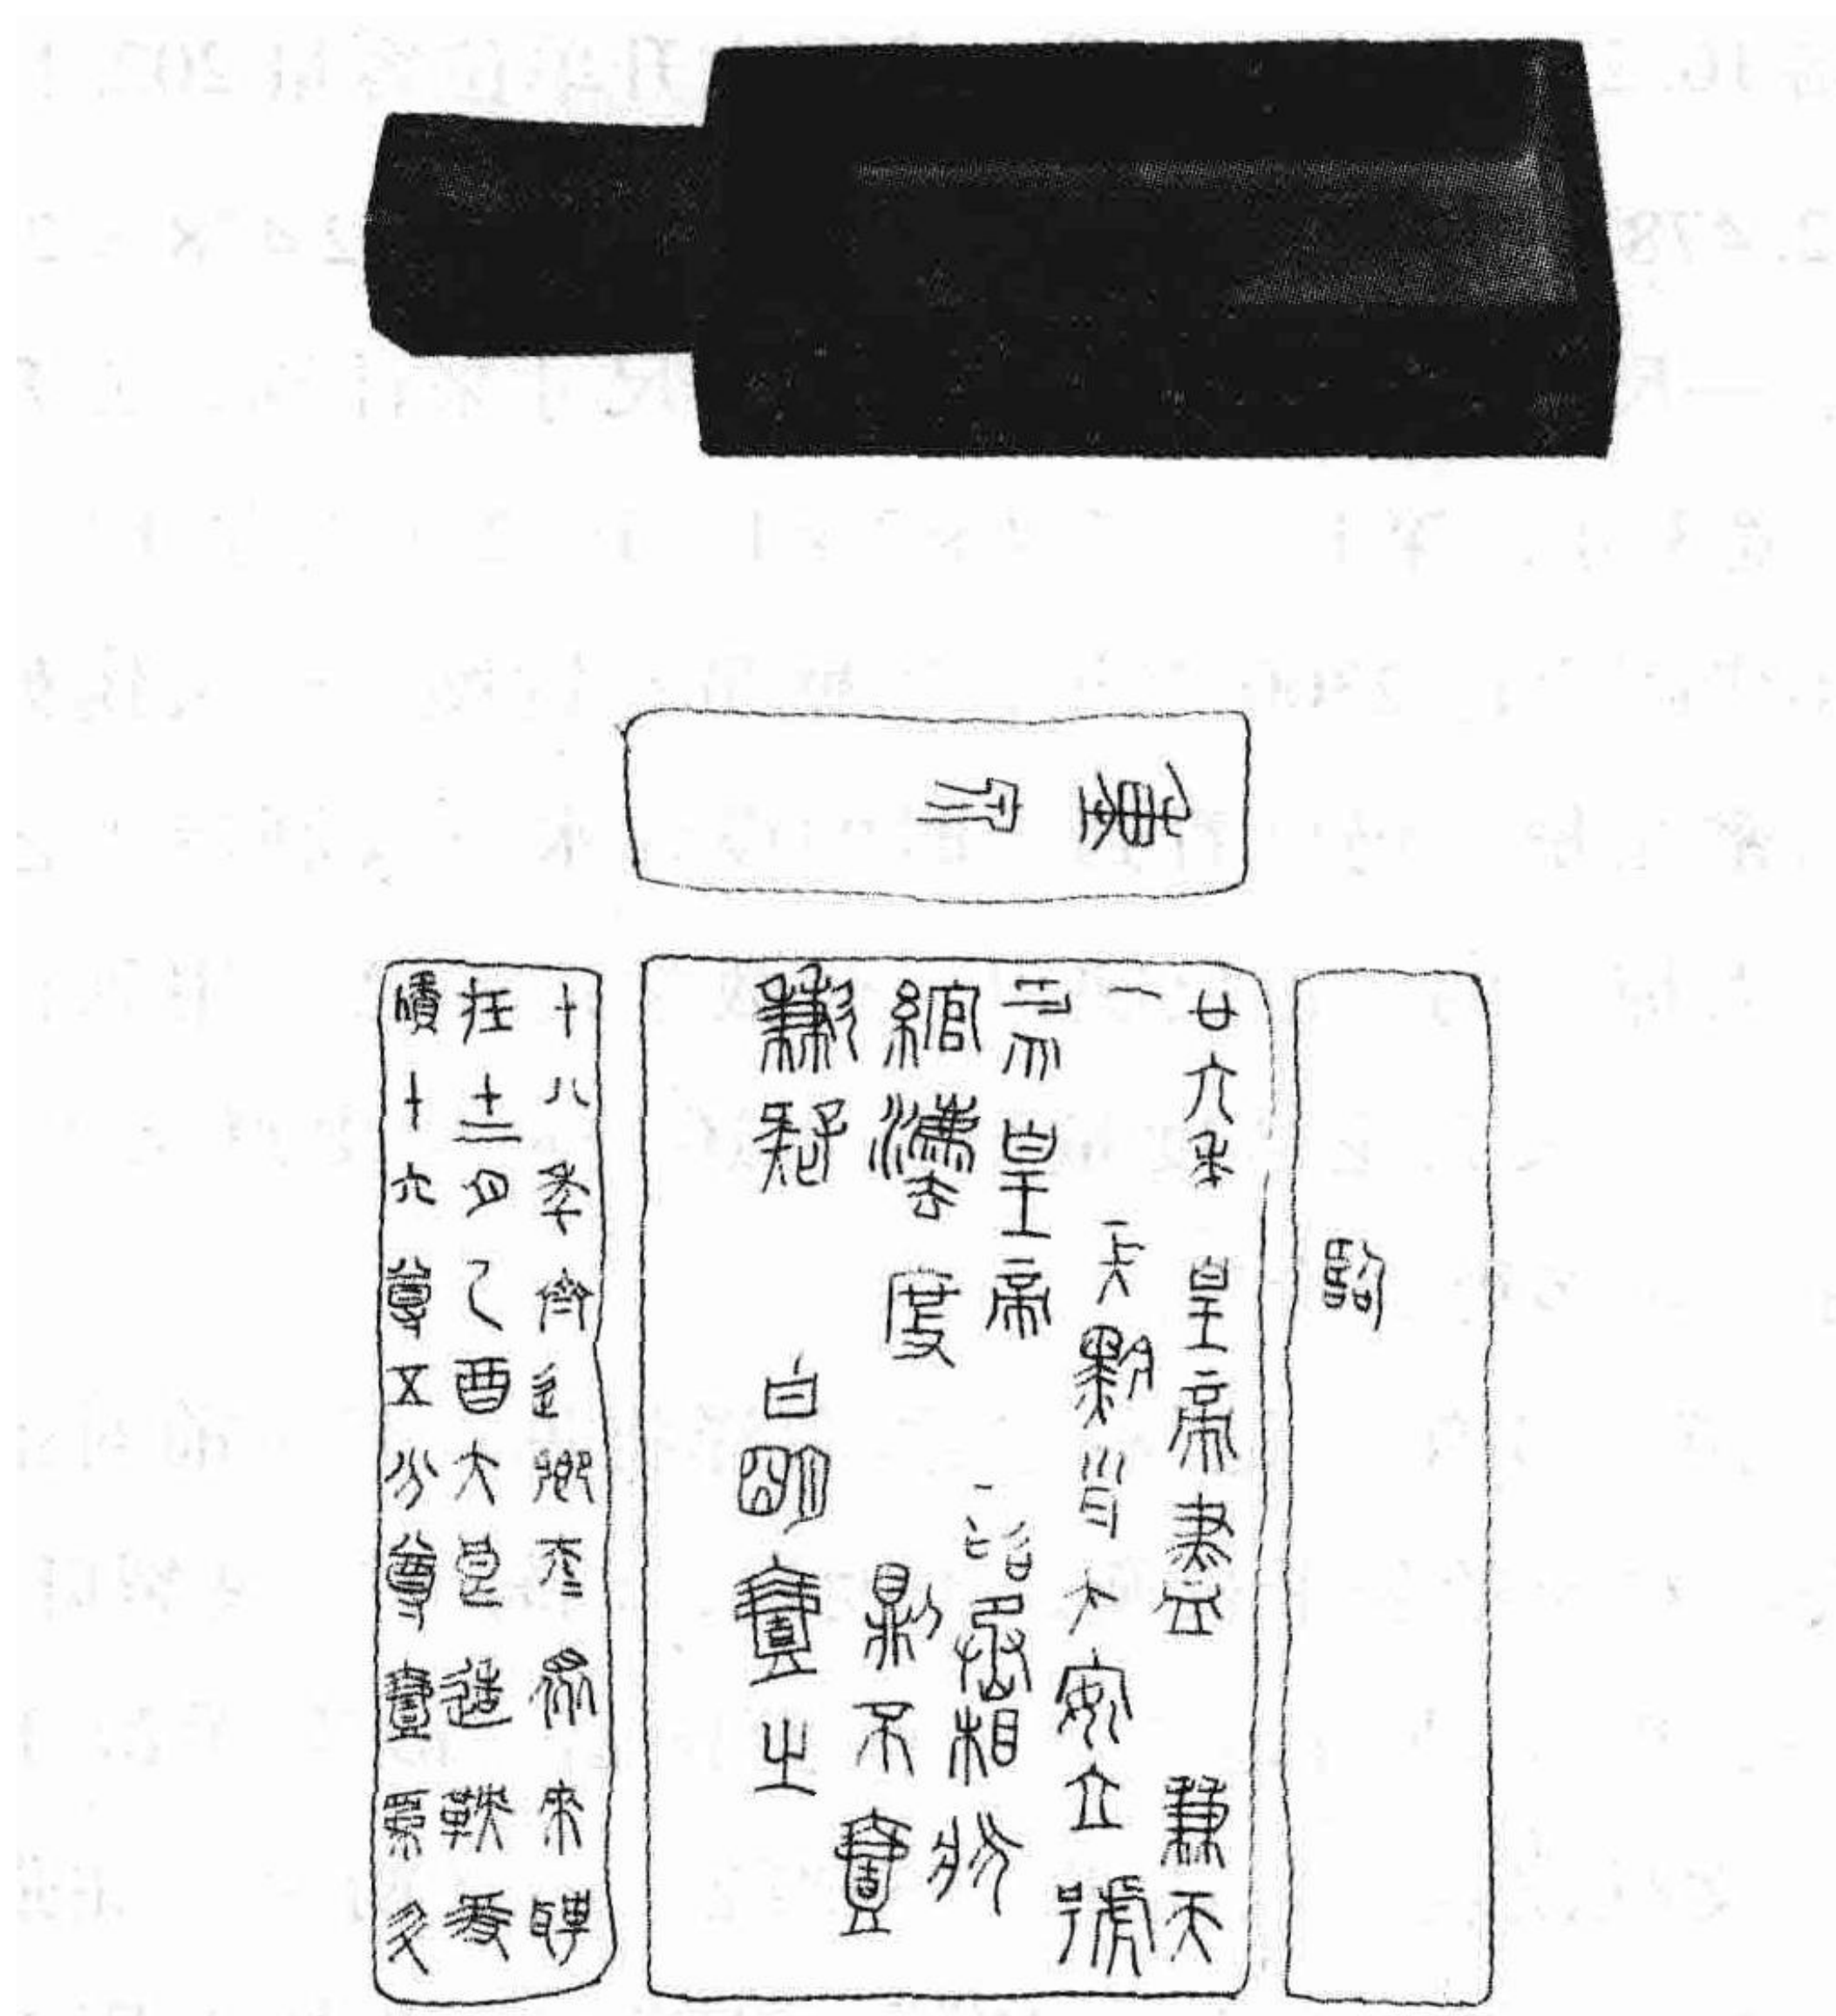 重泉
臨
廿六年皇帝盡并兼天
矦黔首大安立號
為皇帝詔丞相狀
綰灋度則不壹
歉疑明壹之
十八年齊卿大夫眾來聘
十二月乙酉大良造鞅爰
積十六尊五分尊壹為升